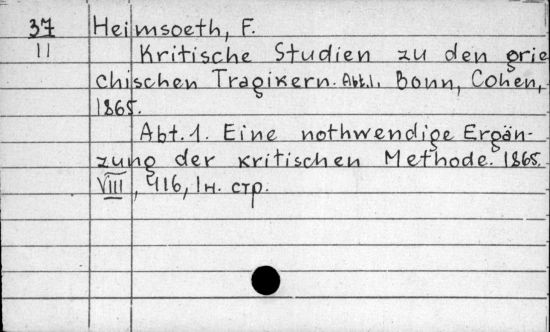 37 Heimsoeth, F.
11 Kritische Studien zu den grie
chischen Tragikern. Abt. 1. Bonn, Cohen,
1865.
Abt. 1. Eine nothwendige Ergän-
zung der kritischen Methode. 1865.
VIII, 416, 1н. стр.